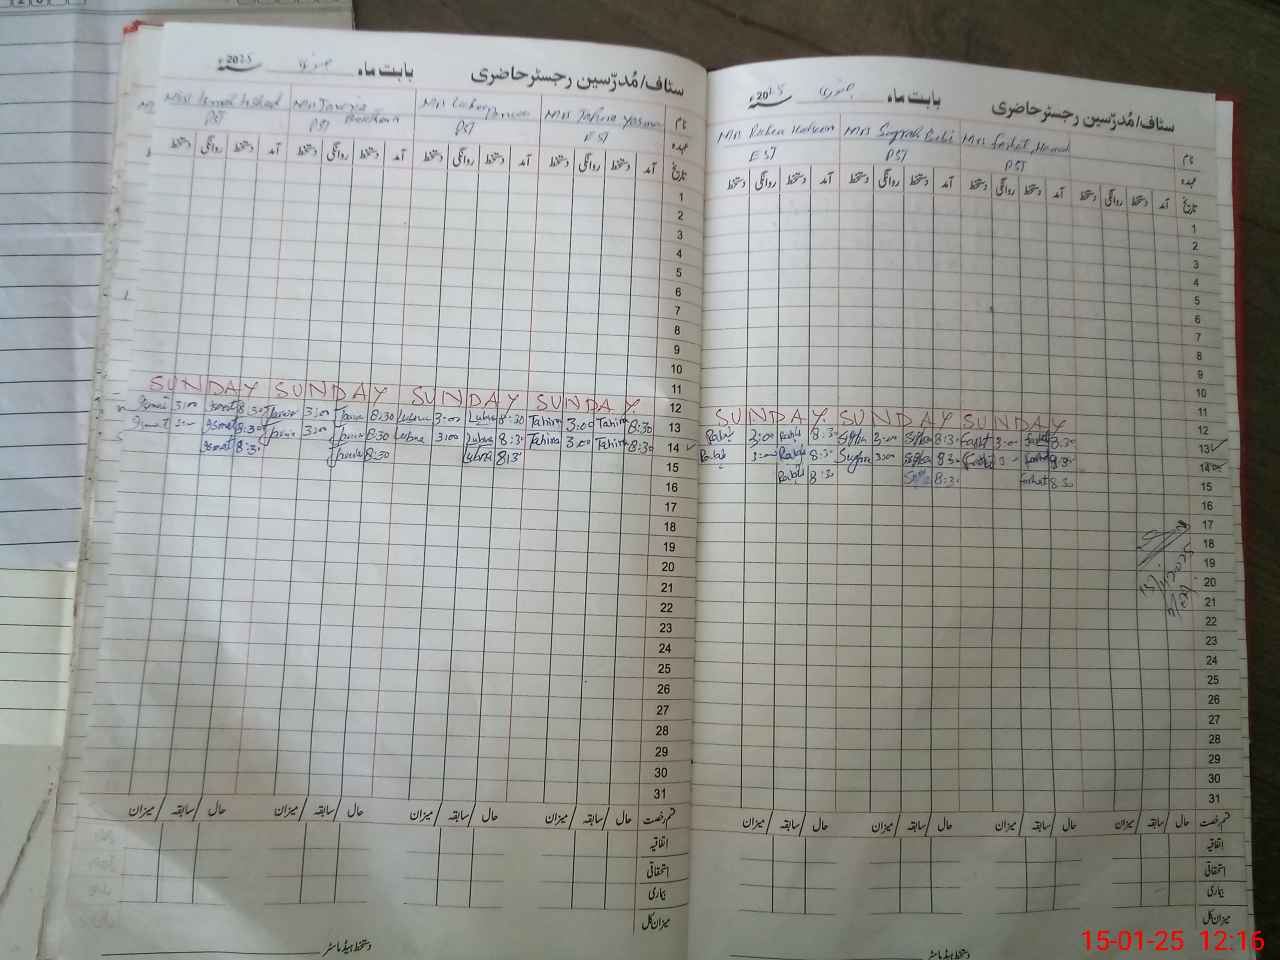 سٹاف/مُدرّسین رجسٹر حاضری بابت ماہ جنوری سنہ 2025ء
نام Mrs Tahira Yasmin Mrs Lubna Mrs Javeria Mrs Ismat Irshad
عہدہ EST PST PST PST
تاریخ آمد دستخط روانگی دستخط آمد دستخط روانگی دستخط آمد دستخط روانگی دستخط آمد دستخط روانگی دستخط
1
2
3
4
5
6
7
8
9
10
11
SUNDAY SUNDAY SUNDAY SUNDAY 12
Ismat 3:00 Ismat 8:30 Javeria 3:00 Javeria 8:30 Lubna 3:00 Lubna 8:30 Tahira 3:00 Tahira 8:30 13
Ismat 3:00 Ismat 8:30 Javeria 3:00 Javeria 8:30 Lubna 3:00 Lubna 8:30 Tahira 3:00 Tahira 8:30 14
Ismat 8:30 Javeria 8:30 Lubna 8:30 15
16
17
18
19
20
21
22
23
24
25
26
27
28
29
30
31
قسم رخصت حال سابقہ میزان حال سابقہ میزان حال سابقہ میزان حال سابقہ میزان
اتفاقیہ
استحقاقی
بیماری
میزان کل
دستخط ہیڈ ماسٹر
سٹاف/مُدرّسین رجسٹر حاضری بابت ماہ جنوری سنہ 2025ء
نام Mrs Farhat Mrs Sughra Bibi Mrs Rabia
عہدہ PST PST EST
تاریخ آمد دستخط روانگی دستخط آمد دستخط روانگی دستخط آمد دستخط روانگی دستخط آمد دستخط روانگی دستخط
1
2
3
4
5
6
7
8
9
10
11
SUNDAY SUNDAY SUNDAY 12
Rabia 3:00 Rabia 8:30 Sughra 3:00 Sughra 8:30 Farhat 3:00 Farhat 8:30 13
Rabia 3:00 Rabia 8:30 Sughra 3:00 Sughra 8:30 Farhat 3:00 Farhat 8:30 14
Rabia 8:30 Sughra 8:30 Farhat 8:30 15
16
17
18
19
20
21
22
23
24
25
26
27
28
29
30
31
قسم رخصت حال سابقہ میزان حال سابقہ میزان حال سابقہ میزان حال سابقہ میزان
اتفاقیہ
استحقاقی
بیماری
میزان کل
دستخط ہیڈ ماسٹر
15-01-25 12:16